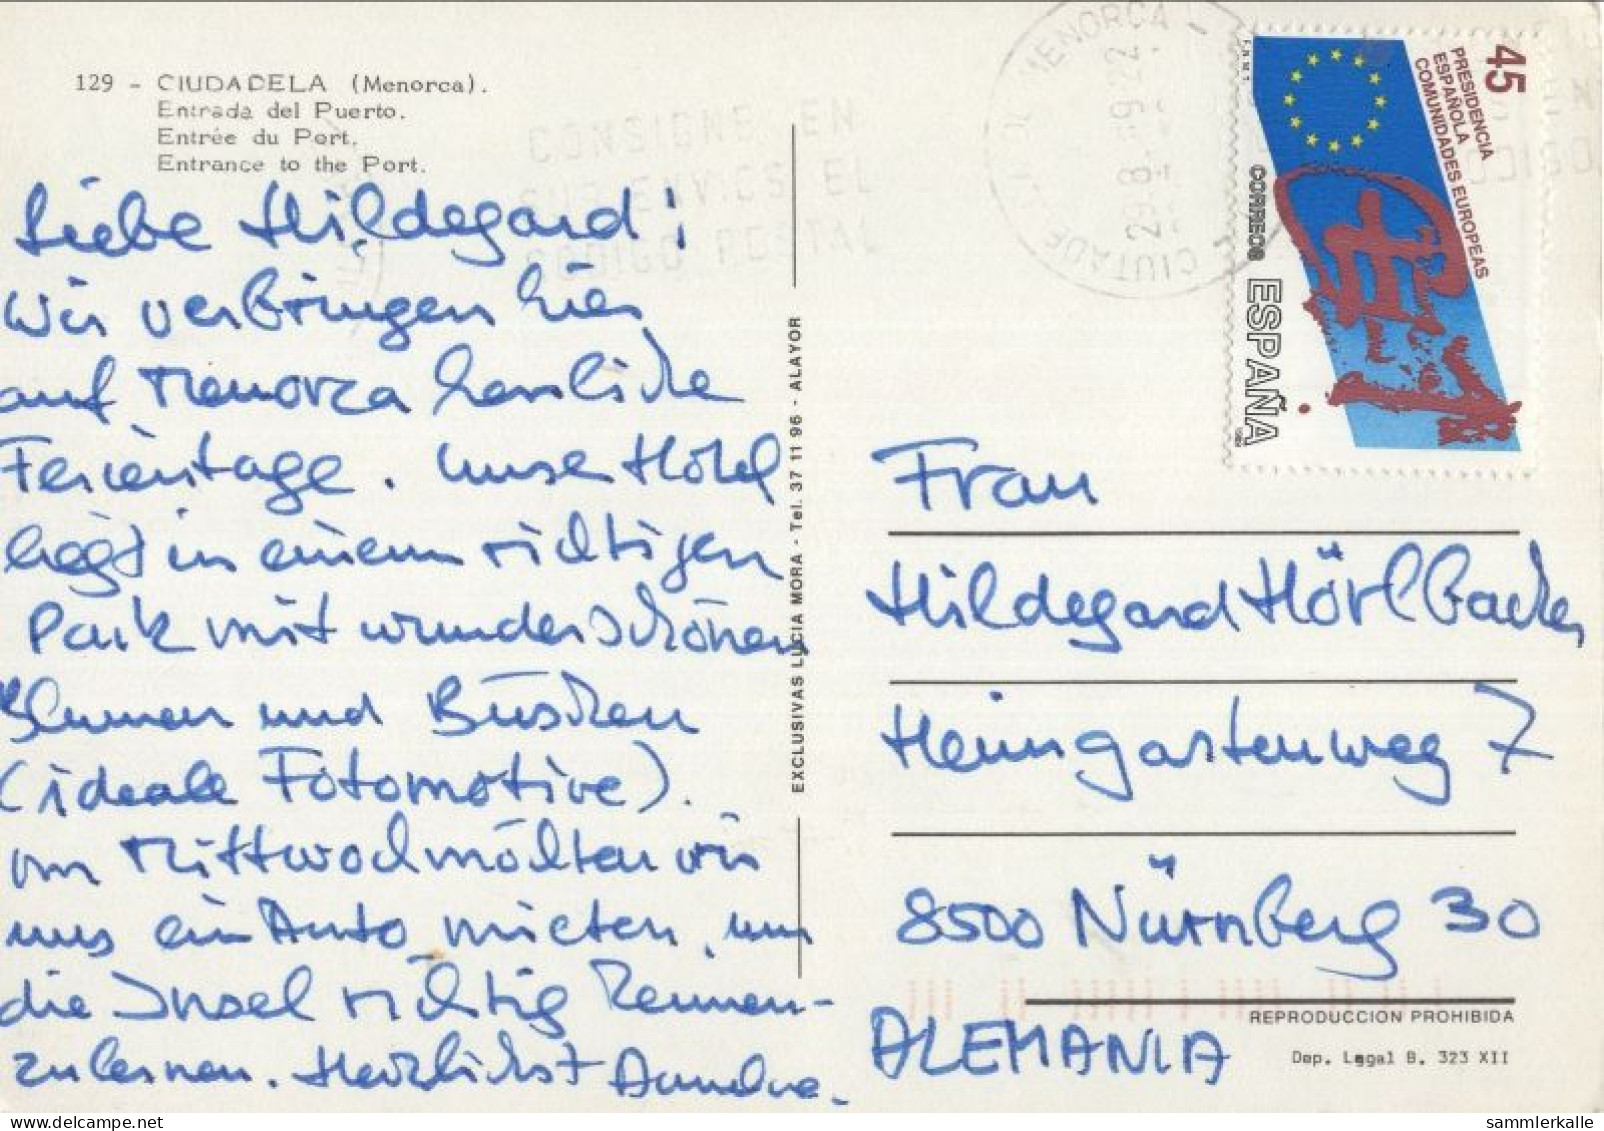 129 - CIUDADELA (Menorca).
Entrada del Puerto.
Entrée du Port.
Entrance to the Port.
CONSIGNE EN
SUS ENVIOS EL
CODIGO POSTAL
Liebe Hildegard!
Wir verbringen hier
auf Menorca herrliche
Ferientage. Unser Hotel
liegt in einem richtigen
Park mit wunderschönen
Blumen und Büschen
(ideale Fotomotive).
Am Mittwoch möchten wir
uns ein Auto mieten, um
die Insel richtig kennen-
zulernen. Herzlichst
EXCLUSIVAS LUCIA MORA - Tel. 37 11 96 - ALAYOR
MENORCA
CIUTADE
45
PRESIDENCIA
ESPAÑOLA
COMUNIDADES EUROPEAS
CORREOS
ESPAÑA
F.N.M.T.
1989
Frau
Hildegard Hörlbacher
Heimgartenweg 7
8500 Nürnberg 30
ALEMANIA
REPRODUCCION PROHIBIDA
Dep. Legal B. 323 XII
sammlerkalle